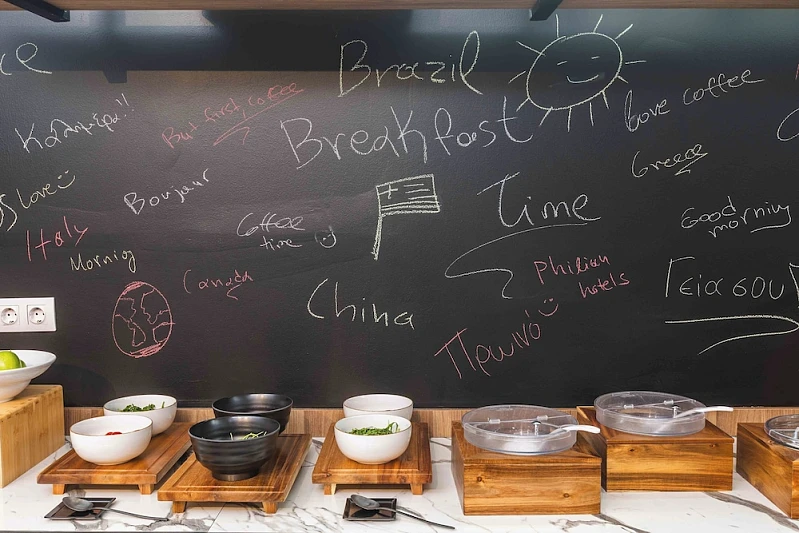 Brazil
Καλημέρα!!
But first, coffee
Breakfast
love coffee
Greece
love
Bonjour
Time
Good
morning
Italy
Coffee
time
Morning
Canada
Philian
hotels
Γειά σου
China
Πρωινό